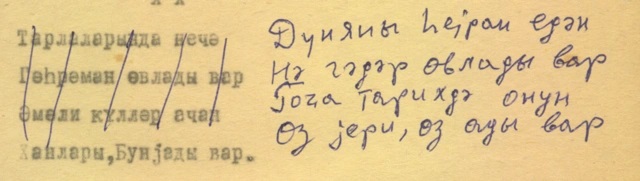 х х
Тарлаларында нечә
Гәһрәман өвлады вар
Әмәли күлләр ачан
Ханлары, Бунјады вар.
Дүнјаны һејран едән
Нә гәдәр өвлады вар
Гоҹа тарихдә онун
Өз јери, өз ады вар